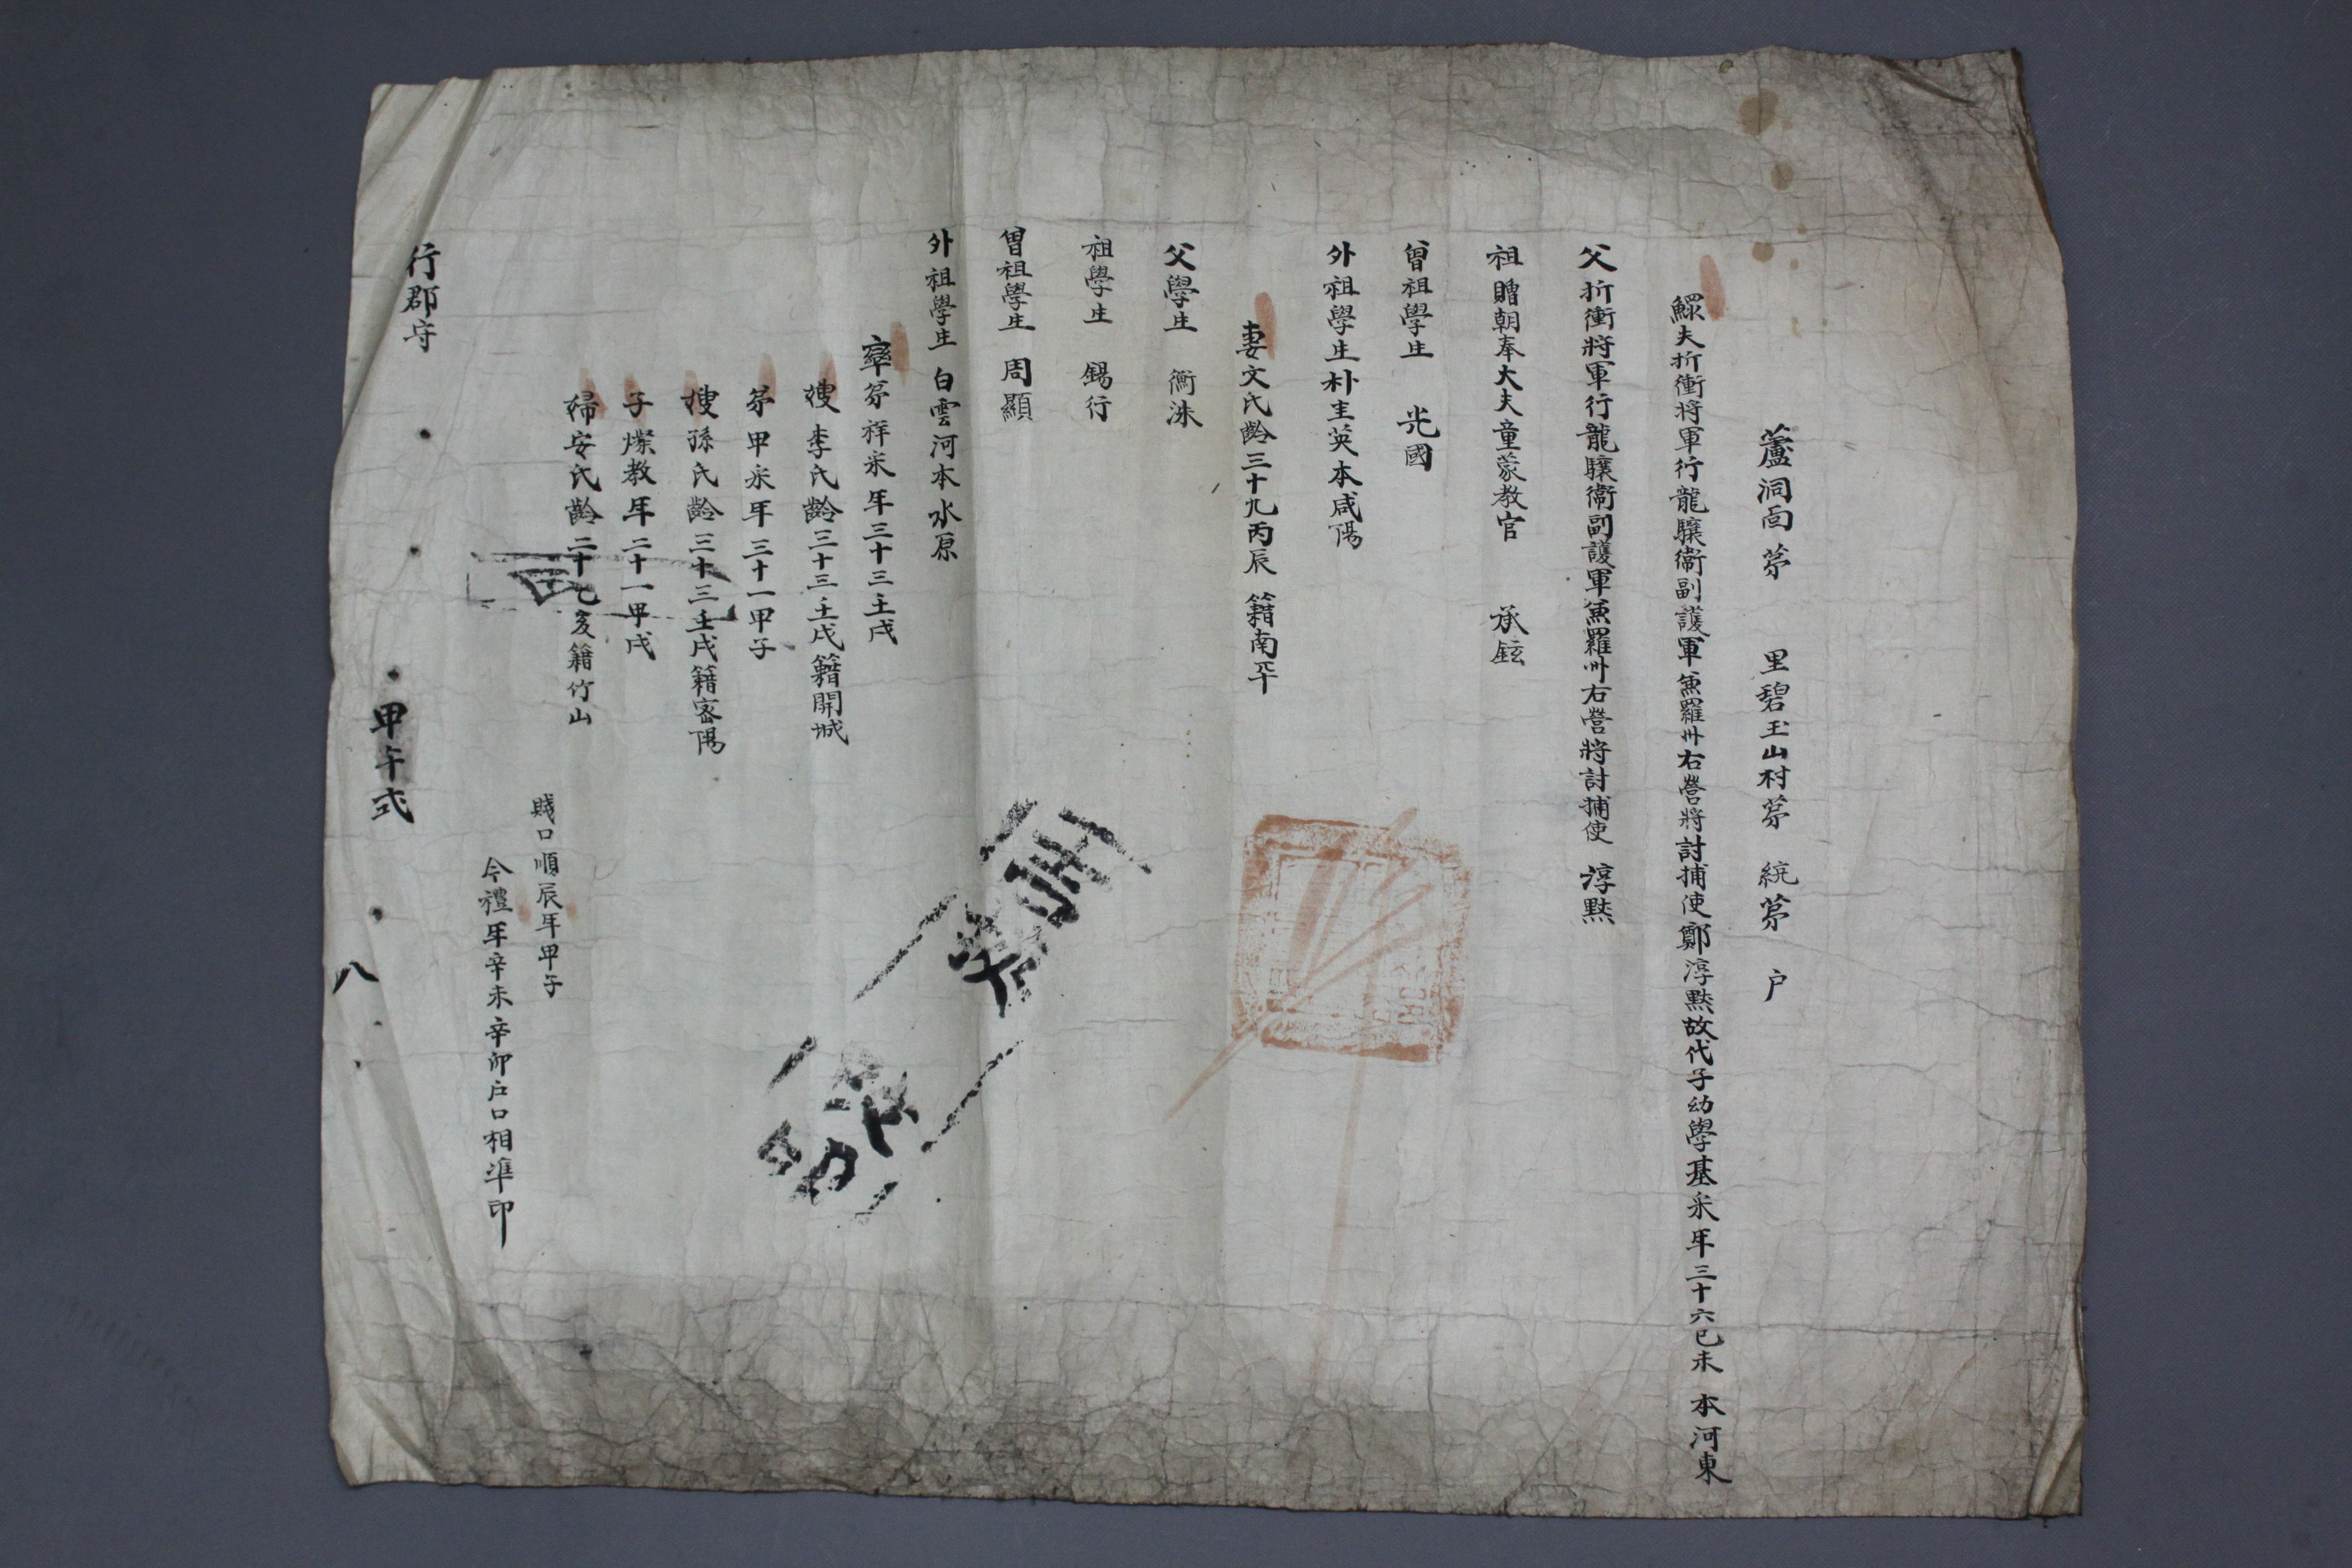 蘆洞面 第 里碧玉山村第 統第 戶
鰥夫折衝將軍行龍驤衛副護軍兼羅州右營將討捕使鄭淳黙故代子幼學基采年三十六己未 本河東
父折衝將軍行龍驤衛副護軍兼羅州右營將討捕使 淳黙
祖贈朝奉大夫童蒙教官 承鉉
曾祖學生 光國
外祖學生朴圭英本咸陽
妻文氏齡三十九丙辰 籍南平
父學生 衡洙
祖學生 錫行
曾祖學生 周顯
外祖學生 白雲河本水原
率弟祥采年三十三壬戌
嫂李氏齡三十三壬戌籍開城
弟甲采年三十一甲子
嫂孫氏齡三十三壬戌籍密陽
子燦教年二十一甲戌
婦安氏齡二十乙亥籍竹山
賤口順辰年甲子
今禮年辛未辛卯戶口相準印
行郡守
甲午式
八